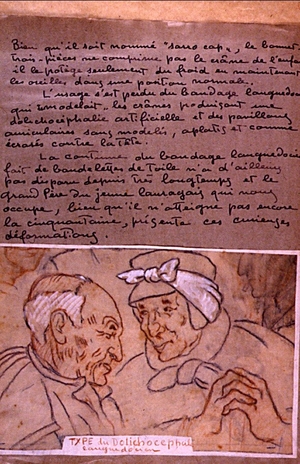 Bien qu'il soit nommé "sans cap", le bonnet
trois-pièces ne comprime pas le crâne de l'enfant
il le protège seulement du froid en maintenant
les oreilles dans une position normale.
L'usage s'est perdu du Bandage languedocien
qui "modelait" les crânes produisant une
dolichocéphalie artificielle et des pavillons
auriculaires sans modelés, aplatis et comme
écrasés contre la tête.
La coutume du bandage languedocien
fait de bandelettes de toile n'a d'ailleurs
pas disparu depuis très longtemps et le
grand père du jeune lauragais qui nous
occupe, bien qu'il n'atteigne pas encore
la cinquantaine, présente ces curieuses
déformations
TYPE du Dolichocéphale
Languedocien